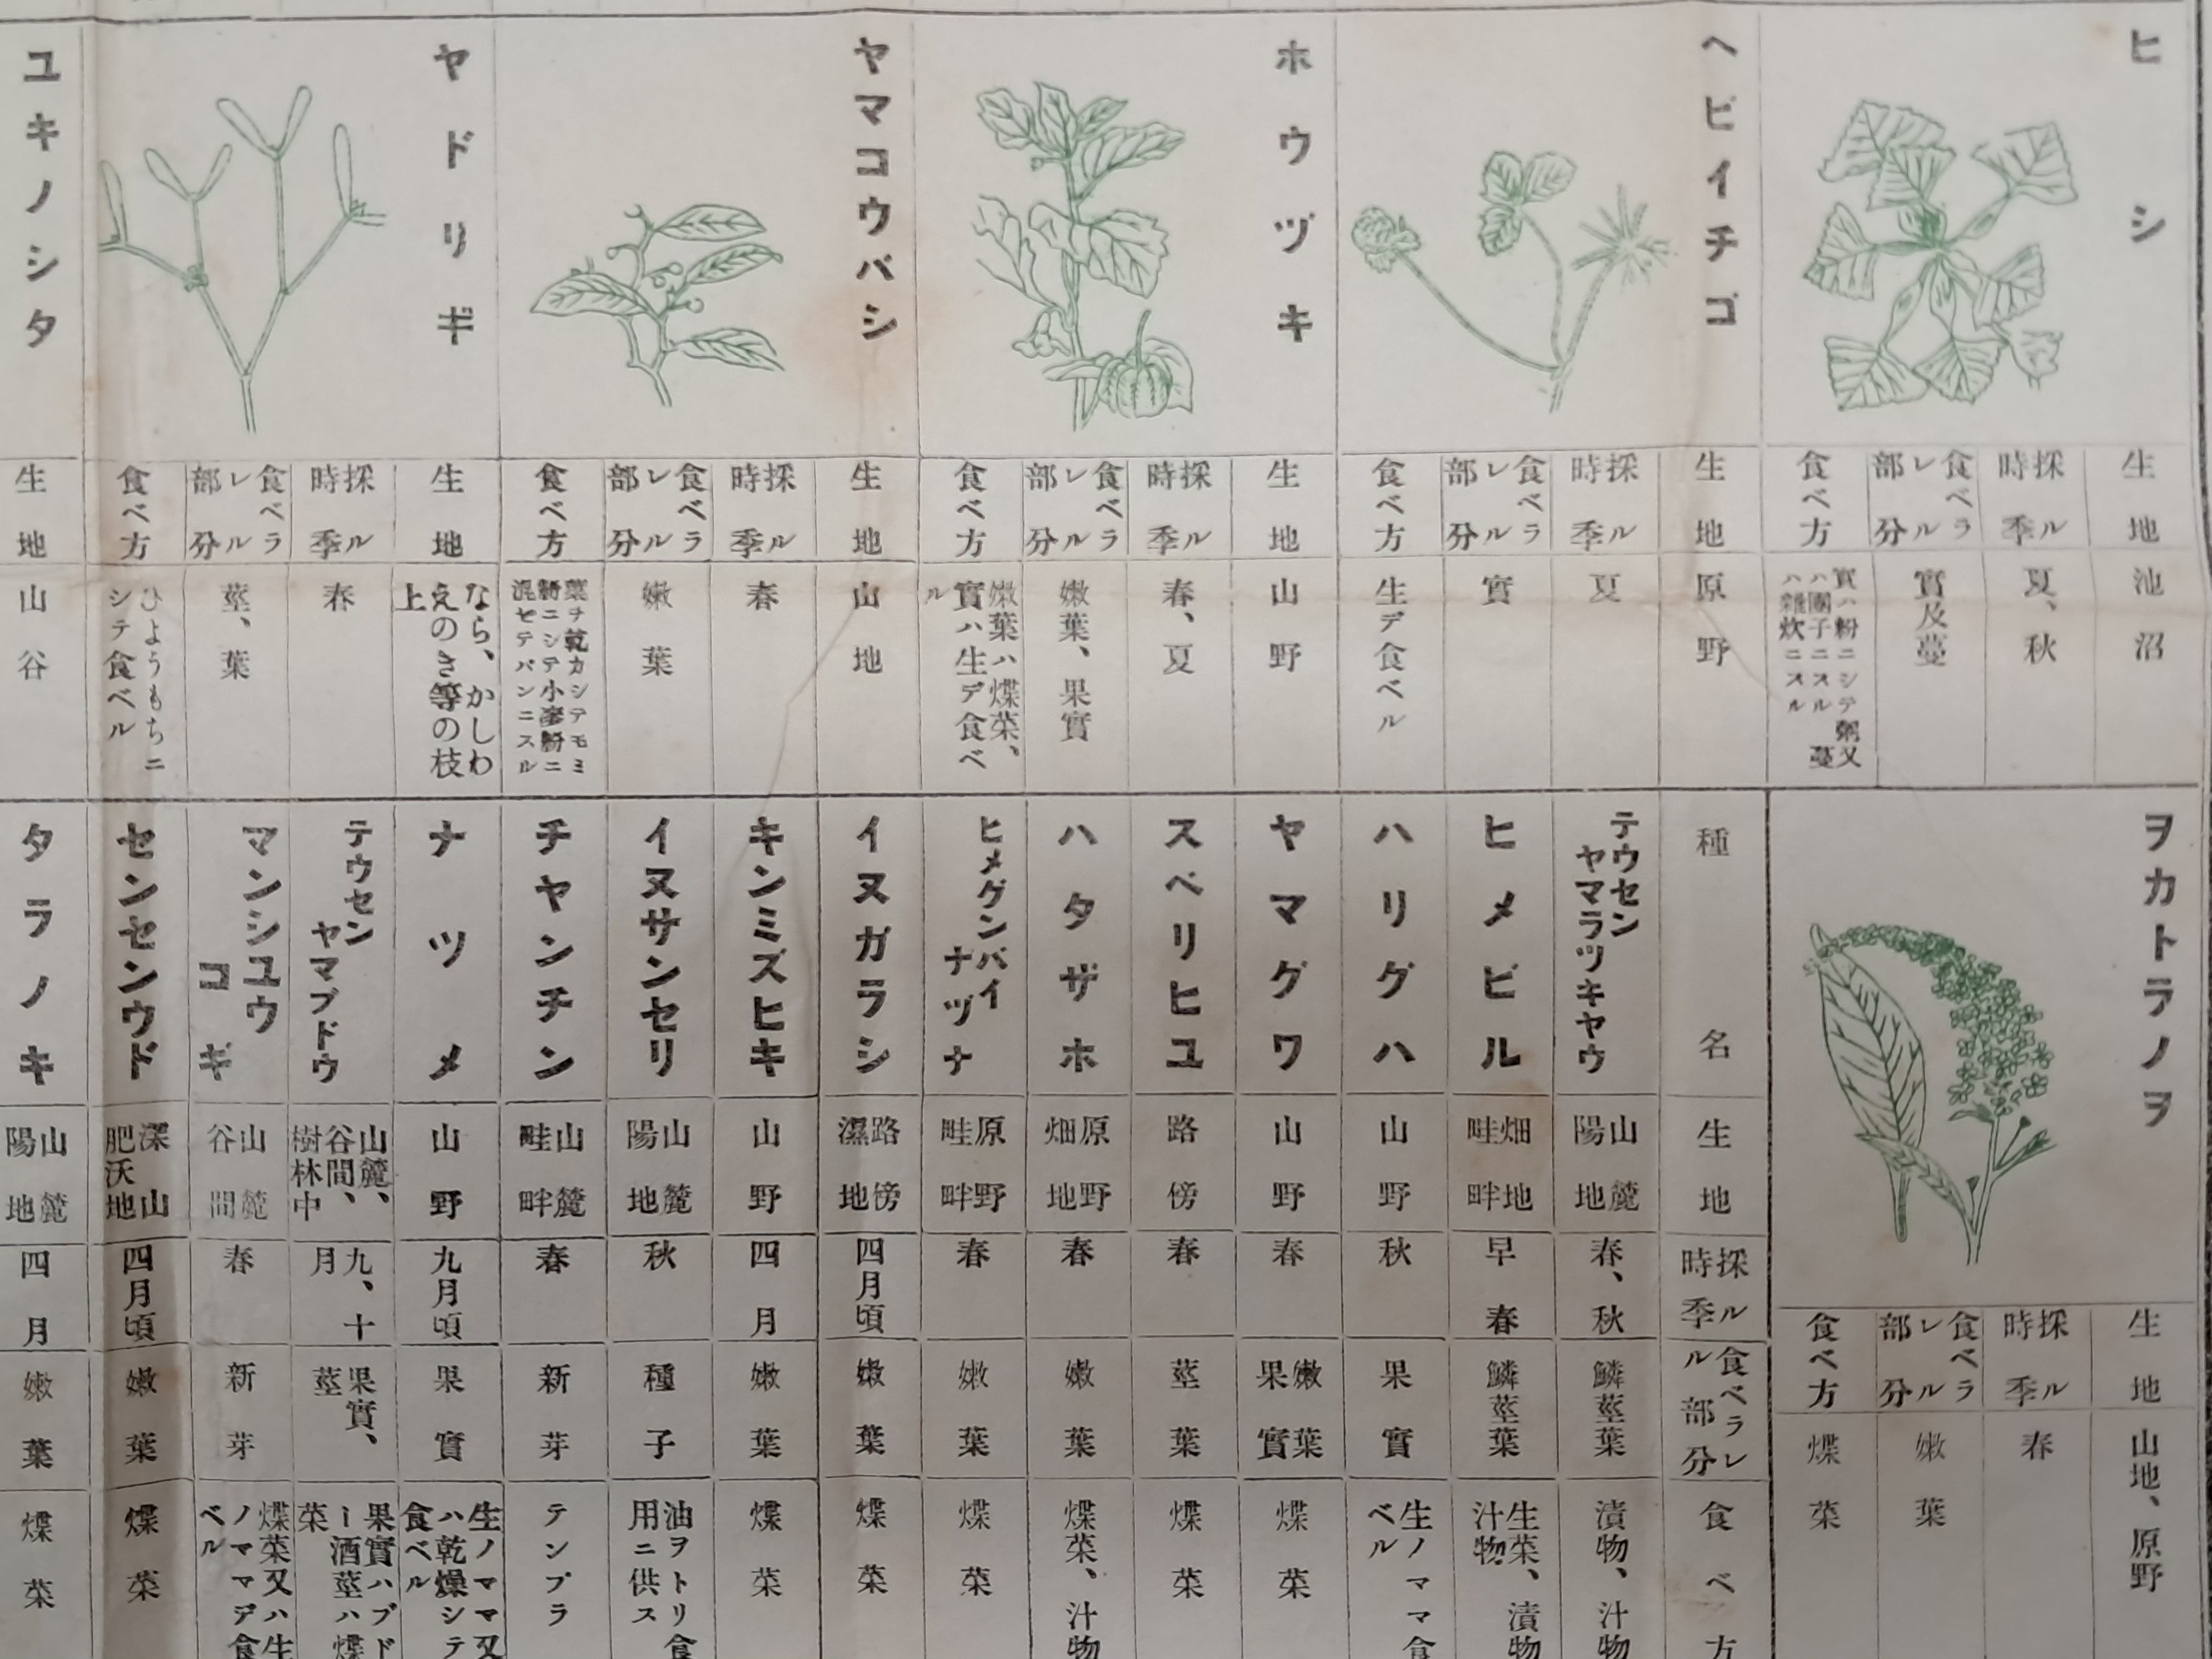 ヒシ
生地
池沼
採ル時季
夏、秋
食ベラレル部分
實及蔓
食ベ方
實ハ粉ニシテ粥又
ハ團子ニスル 蔓
ハ雜炊ニスル
ヘビイチゴ
生地
原野
採ル時季
夏
食ベラレル部分
實
食ベ方
生デ食ベル
ホウヅキ
生地
山野
採ル時季
春、夏
食ベラレル部分
嫩葉、果實
食ベ方
嫩葉ハ煠菜、
實ハ生デ食ベ
ル
ヤマコウバシ
生地
山地
採ル時季
春
食ベラレル部分
嫩葉
食ベ方
葉ヲ乾カシテモミ
粉ニシテ小麥粉ニ
混ゼテパンニスル
ヤドリギ
生地
なら、かしわ
えのき等の枝
上
採ル時季
春
食ベラレル部分
莖、葉
食ベ方
ひようもちニ
シテ食ベル
ユキノシタ
生地
山谷
ヲカトラノヲ
生地
山地、原野
採ル時季
春
食ベラレル部分
嫩葉
食ベ方
煠菜
種名
生地
採ル時季
食ベラレル部分
食ベ方
テウセン
ヤマラツキヤウ
山麓
陽地
春、秋
鱗莖葉
漬物、汁物
ヒメビル
畑地
畦畔
早春
鱗莖葉
生菜、漬物
汁物
ハリグハ
山野
秋
果實
生ノママ食
ベル
ヤマグワ
山野
春
嫩葉
果實
煠菜
スベリヒユ
路傍
春
莖葉
煠菜
ハタザホ
原野
畑地
春
嫩葉
煠菜、汁物
ヒメグンバイ
ナヅナ
原野
畦畔
春
嫩葉
煠菜
イヌガラシ
路傍
濕地
四月頃
嫩葉
煠菜
キンミズヒキ
山野
四月
嫩葉
煠菜
イヌサンセリ
山麓
陽地
秋
種子
油ヲトリ食
用ニ供ス
チヤンチン
山麓
畦畔
春
新芽
テンプラ
ナツメ
山野
九月頃
果實
生ノママ又
ハ乾燥シテ
食ベル
テウセン
ヤマブドウ
山麓、
谷間、
樹林中
九、十
月
果實、
莖
果實ハブド
ー酒莖ハ煠
菜
マンシユウ
コギ
山麓
谷間
春
新芽
煠菜又ハ生
ノママデ食
ベル
センセンウド
深山
肥沃地
四月頃
嫩葉
煠菜
タラノキ
山麓
陽地
四月
嫩葉
煠菜